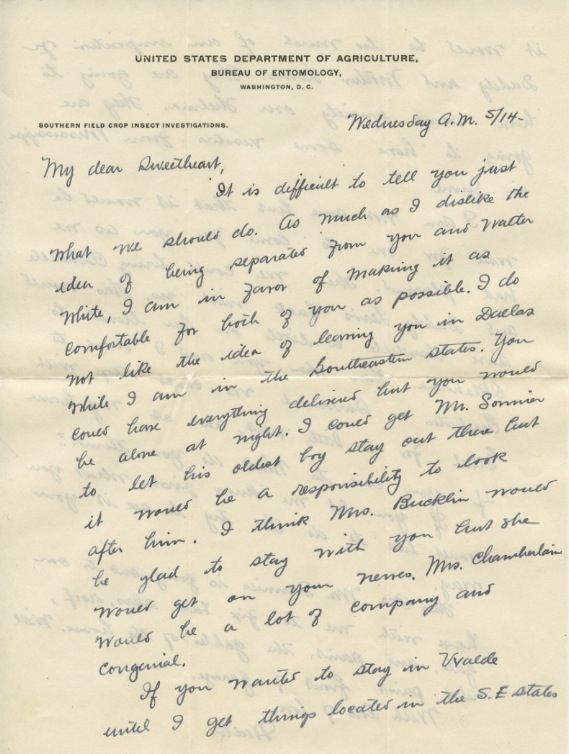 UNITED STATES DEPARTMENT OF AGRICULTURE,
BUREAU OF ENTOMOLOGY,
WASHINGTON, D. C.
SOUTHERN FIELD CROP INSECT INVESTIGATIONS.
Wednesday A.M. 5/14-
My dear Sweetheart,
It is difficult to tell you just
what we should do. As much as I dislike the
idea of being separated from you and Walter
White, I am in favor of making it as
comfortable for both of you as possible. I do
not like the idea of leaving you in Dallas
while I am in the Southeastern states. You
could have everything delivered but you would
be alone at night. I could get Mr. Sonnier
to let his oldest boy stay out there but
it would be a responsibility to look
after him. I think Mrs. Bucklin would
be glad to stay with you but she
would get on your nerves. Mrs. Chamberlain
would be a lot of company and
congenial.
If you wanted to stay in Uvalde
until I get things located in the S.E states